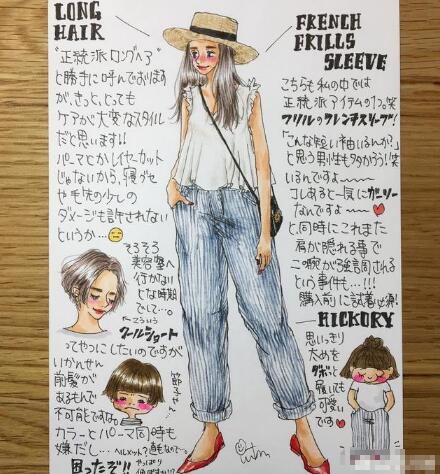 LONG
HAIR
"正統派ロングヘア"
と勝手に呼んでおります
が、きっと、とっても
ケアが大変なスタイル
だと思います!!
パーマとかレイヤーカット
じゃないから、寝グセ
や毛先の少しの
ダメージも許されない
というか…
そろそろ
美容室へ
行かない
とな時期
でして…。
こういう
クールショート
ってやつにしたいのですが
いかんせん
前髪が
あるもんで
不可能ですな。
カラーとパーマ同時も
嫌だし…
困ったぞ!!
FRENCH
FRILLS
SLEEVE
こちらも私の中では
正統派アイテムの1つ。笑
フリルのフレンチスリーブ!
「こんな短い袖いるんか?」
と思う男性も多かろう!笑
いるんですよ〜
コレあると一気にガーリー
なんですよ〜
と、同時にこれまた
肩が隠れる事で
二の腕が強調される
という事件…!!!
購入前に試着必須!
HICKORY
思いっきり
太めを
ダボッと
履いても
可愛い
です